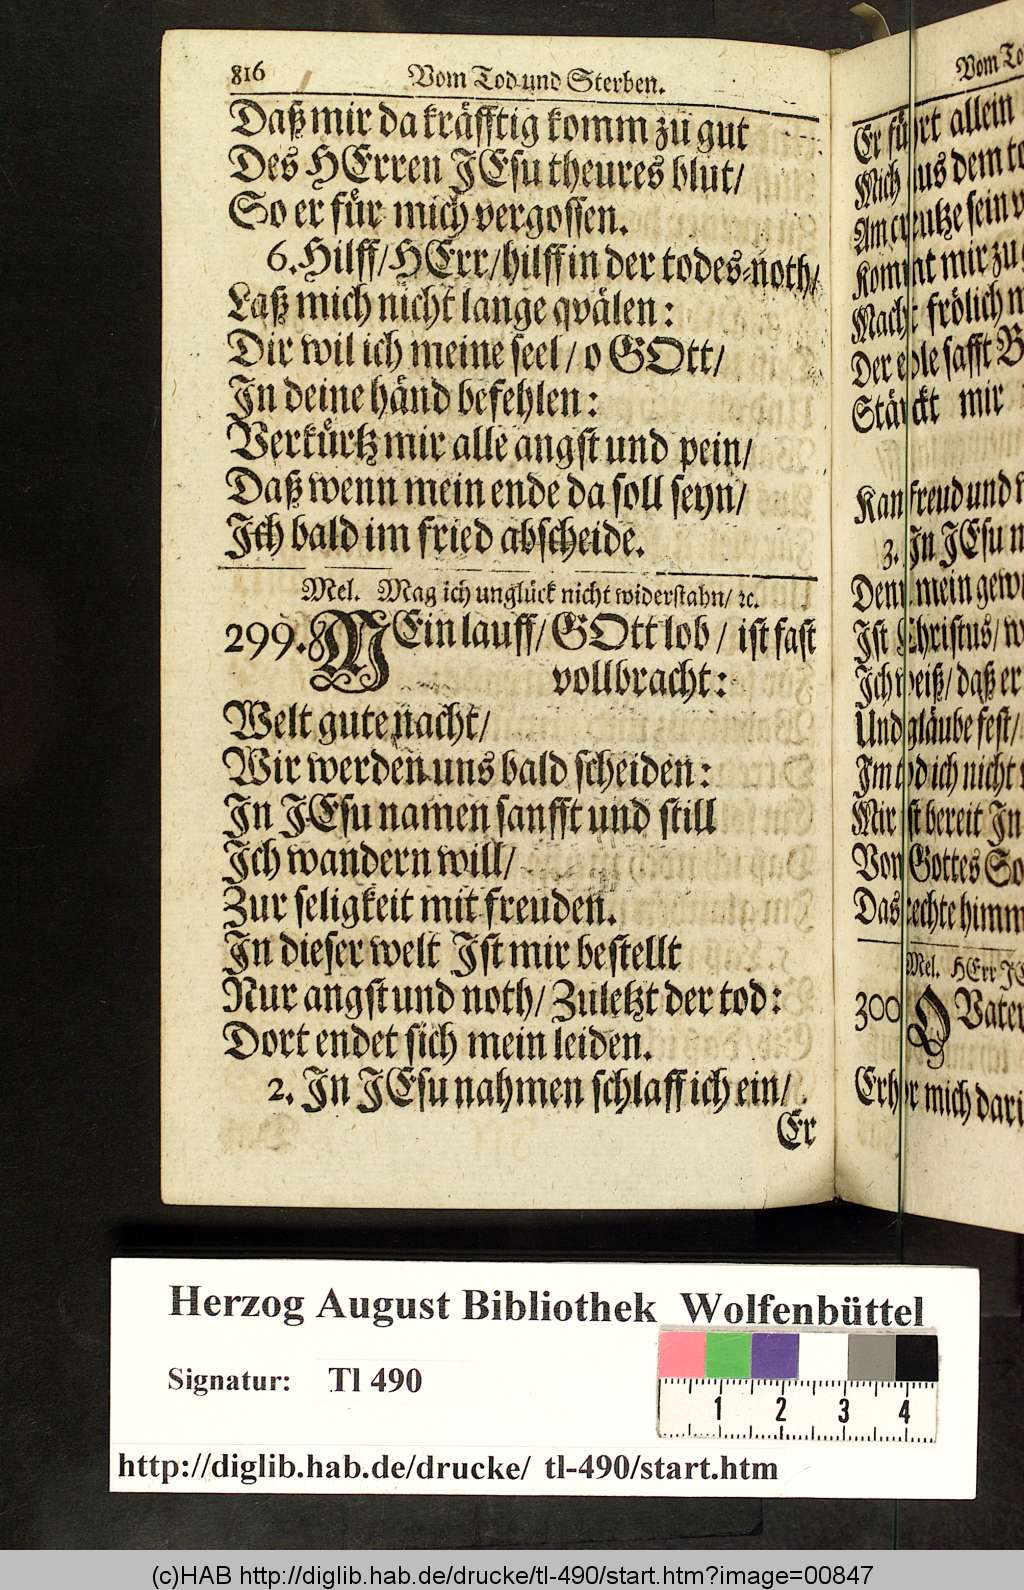 816 Vom Tod und Sterben.
Daß mir da kräfftig komm zu gut
Des HErren JEsu theures blut/
So er für mich vergossen.
6. Hilff/HErr/hilff in der todes-noth/
Laß mich nicht lange qvälen:
Dir wil ich meine seel/ o GOtt/
In deine händ befehlen:
Verkürtz mir alle angst und pein/
Daß wenn mein ende da soll seyn/
Ich bald im fried abscheide.
Mel. Mag ich unglück nicht widerstahn/ ꝛc.
299. MEin lauff/ GOtt lob/ ist fast
vollbracht:
Welt gute nacht/
Wir werden uns bald scheiden:
In JEsu namen sanfft und still
Ich wandern will/
Zur seligkeit mit freuden.
In dieser welt Ist mir bestellt
Nur angst und noth/ Zuletzt der tod:
Dort endet sich mein leiden.
2. In JEsu nahmen schlaff ich ein/
Er
Vom
allein
aus dem
sein
mir zu
frölich
safft
mir
freud und
3. In JEsu
mein
Christus/
daß er
gläube fest/
ich nicht
bereit In
Von Gottes
Das rechte
Mel. HErr
300 O Vater
mich
Herzog August Bibliothek Wolfenbüttel
Signatur: Tl 490
1 2 3 4
http://diglib.hab.de/drucke/ tl-490/start.htm
(c)HAB http://diglib.hab.de/drucke/tl-490/start.htm?image=00847